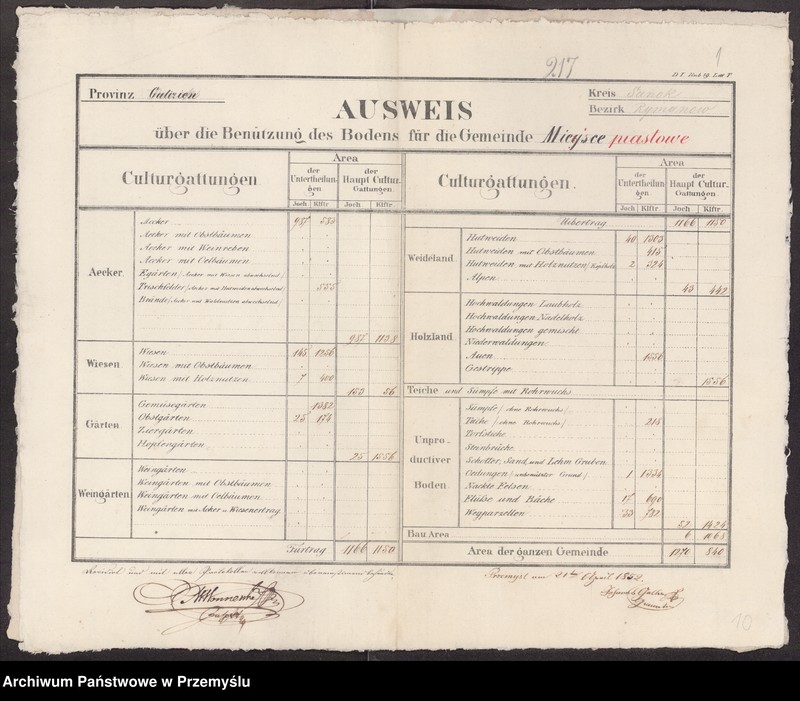 217
1
Provinz Galizien
Kreis Sanok
Bezirk Rymanow
AUSWEIS
über die Benützung des Bodens für die Gemeinde Mieysce piastowe
Culturgattungen
Area
der Untertheilungen
der Haupt Cultur. Gattungen.
Joch Klftr. Joch Klftr.
Aecker
Aecker 957
Aecker mit Obstbäumen
Aecker mit Weinreben
Aecker mit Oelbäumen
Egärten / Aecker mit Wiesen abwechselnd /
Trischfelder / Aecker mit Hutweiden abwechselnd / 555
Brände / Aecker mit Waldnutzen abwechselnd /
957 1138
Wiesen
Wiesen 145 1256
Wiesen mit Obstbäumen
Wiesen mit Holznutzen 7 400
153 56
Gärten
Gemüsegärten 1382
Obstgärten 25 174
Ziergärten
Hopfengärten
25 1556
Weingärten
Weingärten
Weingärten mit Obstbäumen
Weingärten mit Oelbäumen
Weingärten mit Acker u Wiesenertrag
Fürtrag 1166 1150
Culturgattungen.
Area
der Untertheilungen
der Haupt Cultur. Gattungen.
Joch Klftr. Joch Klftr.
Uibertrag 1166 1150
Weideland
Hutweiden 40 1303
Hutweiden mit Obstbäumen 415
Hutweiden mit Holznutzen 2 324
Alpen
43 442
Holzland
Hochwaldungen Laubholz
Hochwaldungen Nadelholz
Hochwaldungen gemischt
Niederwaldungen
Auen 1556
Gestrippe
1556
Teiche und Sümpfe mit Rohrwuchs
Unproductiver Boden
Sümpfe / ohne Rohrwuchs /
Teiche / ohne Rohrwuchs / 218
Torfstiche
Steinbrüche
Schotter, Sand und Lehm Gruben
Oedungen / unbenützter Grund / 1 1334
Nackte Felsen
Flüße und Bäche 17 690
Wegparzellen 33 782
52 1424
Bau Area 6 1068
Area der ganzen Gemeinde 1270 840
Przemysl am 21ten April 1852
10
Archiwum Państwowe w Przemyślu